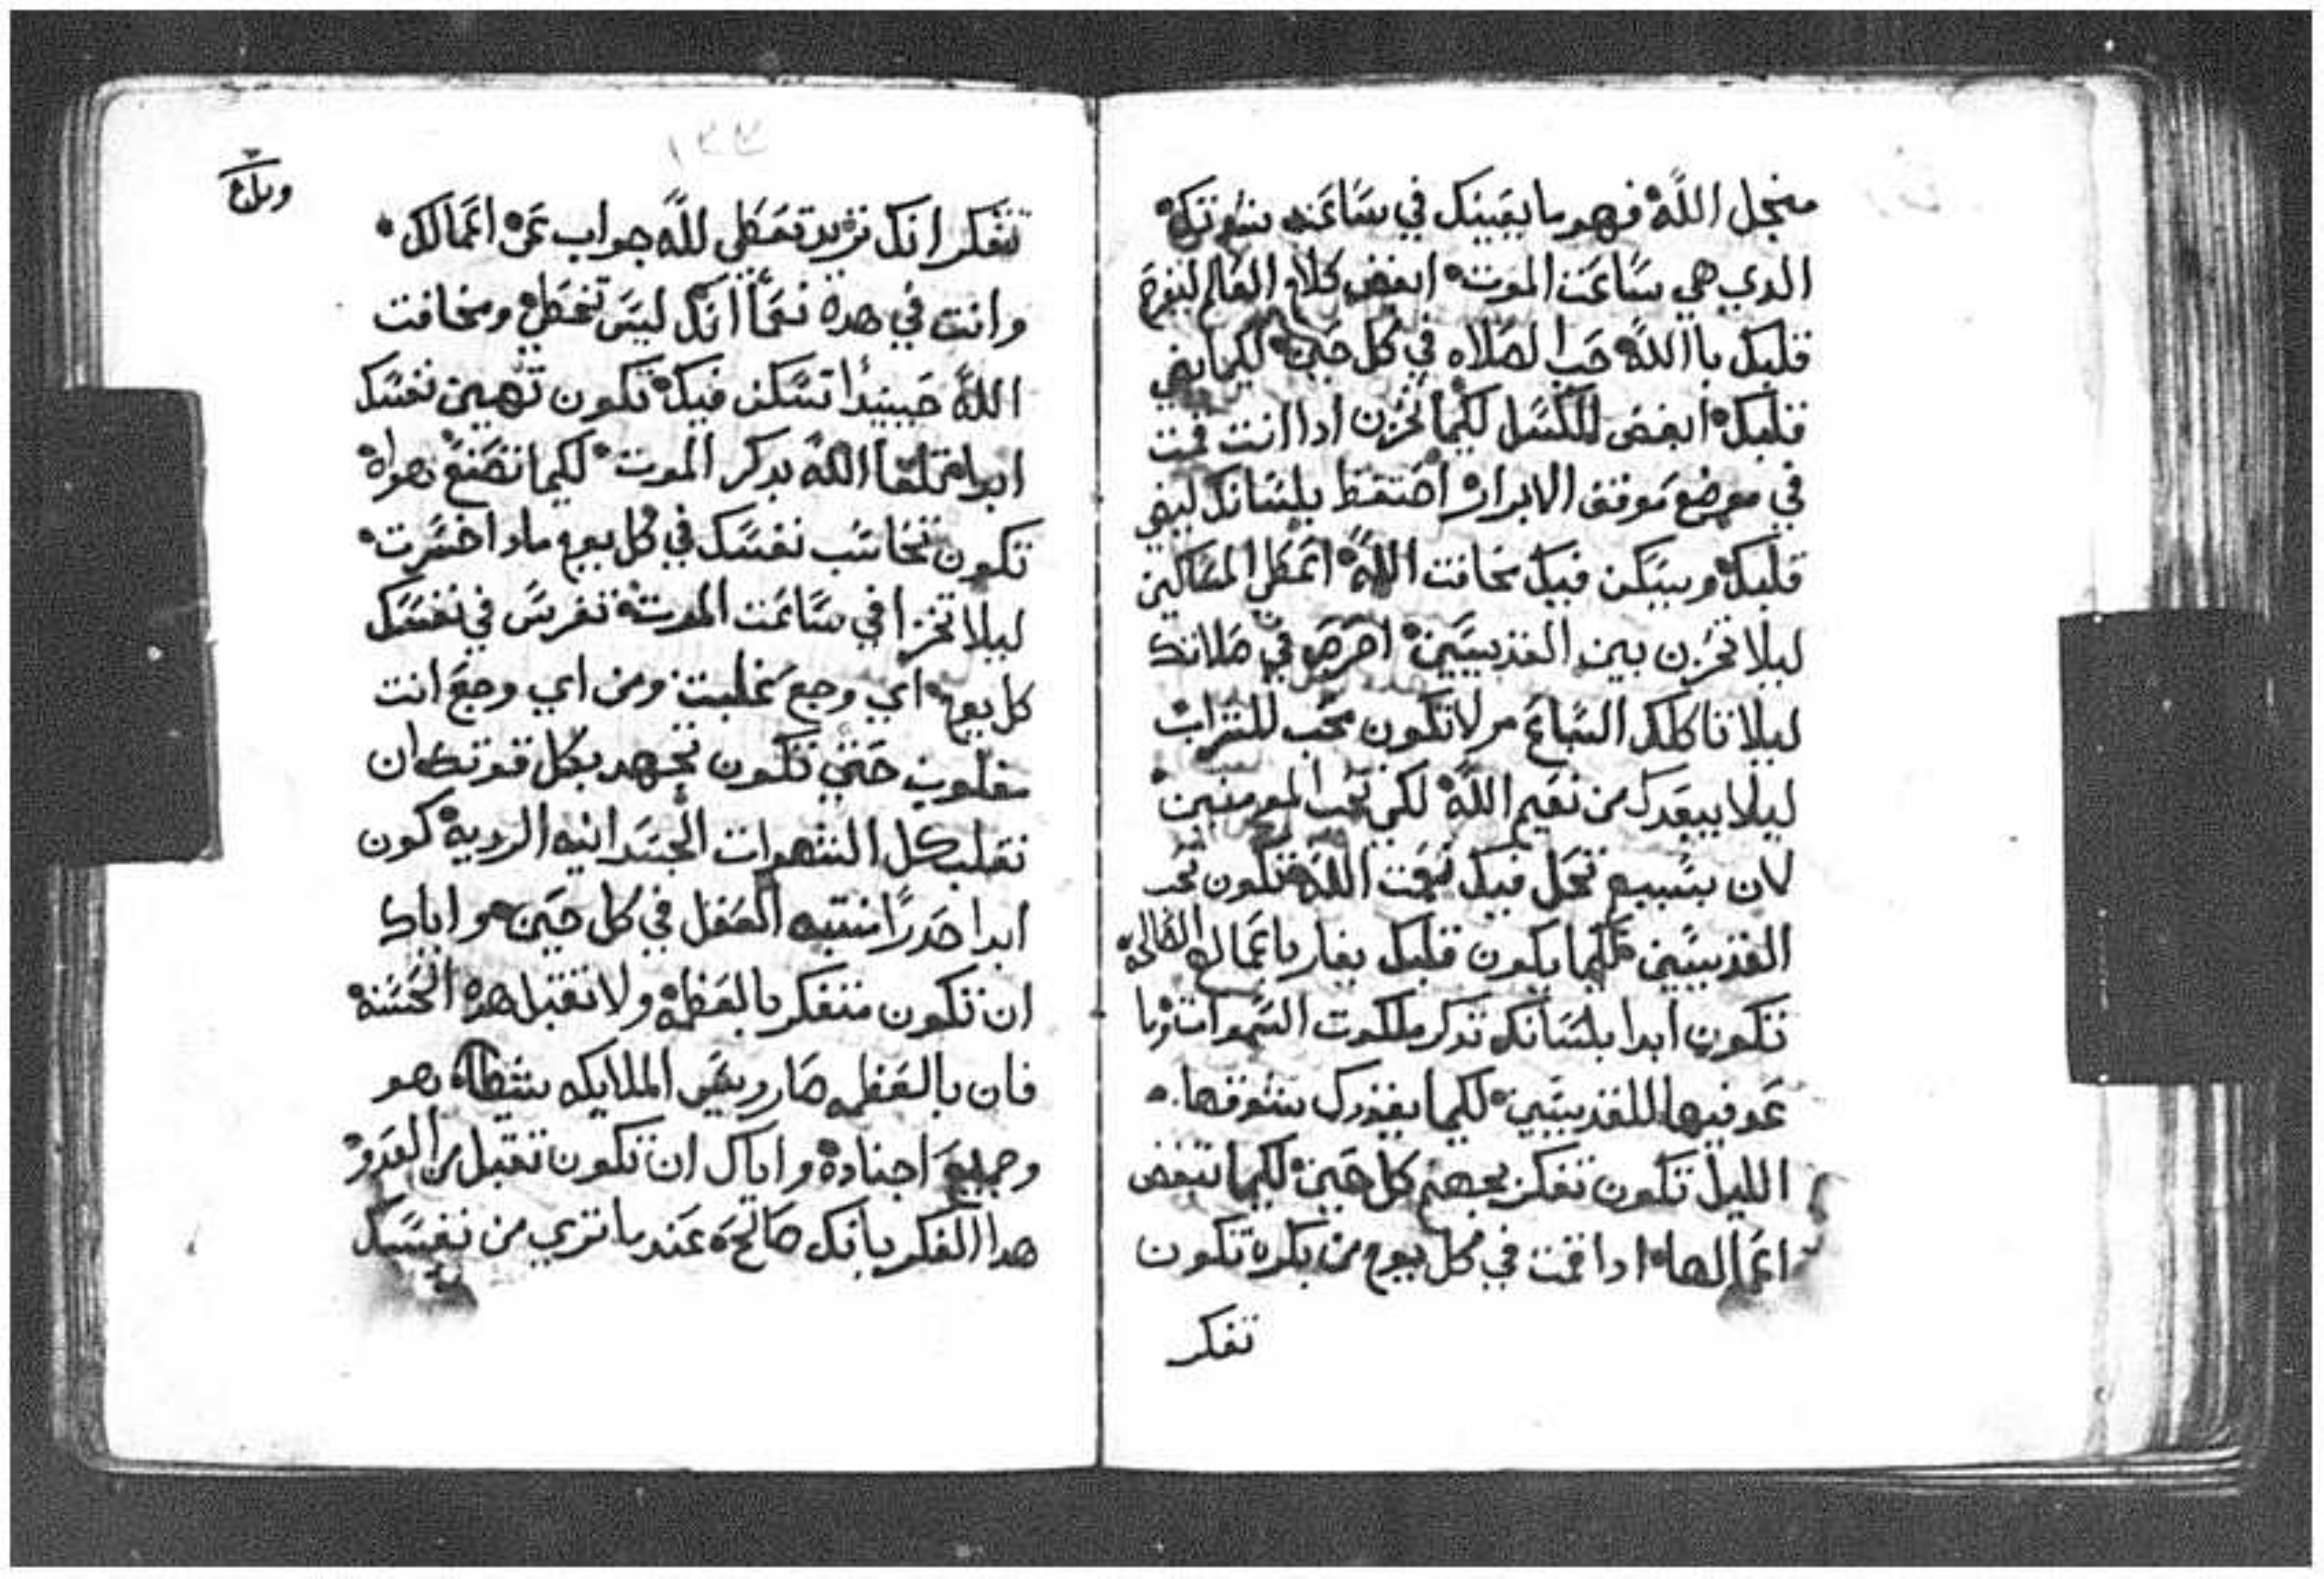 منجل الله فهو ما يعينك في ساعته شدتك
الدي هي ساعت الموت ابغض كلام العالم ليفرح
قلبك باالله حب الصلاه في كل حين لكيما يضي
قلبك ابغض للكسل لكيما تحزن ادا انت قمت
في موضع موقف الابرار احتفظ بلسانك ليضي
قلبك ويسكن فيك مخافت الله اعطي المساكين
ليلا تحزن بين القديسين احرص في صلاتك
ليلا تاكلك السباع ولا تكون محب للشراب
ليلا يبعدك من نعيم الله لكن تحب المومنين
لان بسببهم تحل فيك نعمت الله تكون تحب
القديسين لكيما يكون قلبك يغار باعمالهم الصالحه
تكون ابدا بلسانك تدكر ملكوت السموات وما
عد فيها للقديسين لكيما يقودك شوقها
الليل تكون تفكر بجهنم كل حين لكيما تبغض
اعمالها ادا قمت في كل يوم من بكره تكون
تفكر
١٣٣
تتفكر انك تريد تعطي لله جواب عن اعمالك
وانت في هده نعما انك ليس تخطي ومخافت
الله حينيدا تسكن فيك تكون تهين نفسك
ابدا تلقا الله بدكر الموت لكيما تصنع هواه
تكون تحاسب نفسك في كل يوم مادا خسرت
ليلا تخزا في ساعت الموت تفرس في نفسك
كل يوم اي وجع غلبت ومن اي وجع انت
مغلوب حتي تكون تجهد بكل قوتك ان
تغلب كل الشهوات الجسدانيه الرديه كون
ابدا حدرا منتبه العقل في كل حين واياك
ان تكون متفكر بالعظمه ولا تقبل هده الحسنه
فان بالعظمه صار رييس الملايكه شيطان هو
وجميع اجناده واياك ان تكون تقبل من العدو
هدا الفكر بانك صالح عند ما تري من نفسك